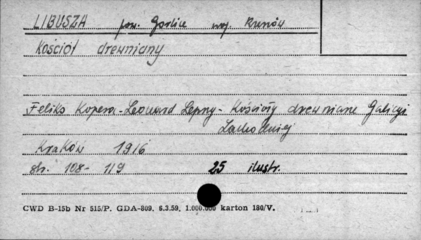 LIBUSZA pow. Gorlice woj. Kraków
Kościół drewniany
Feliks Kopera - Leonard Lepszy - Kościoły drewniane Galicyi
Zachodniej
Kraków 1916
str. 108-119 25 ilustr.
CWD B-15b Nr 515/P. GDA-809, 6.3.59, 1.000.000 karton 180/V.